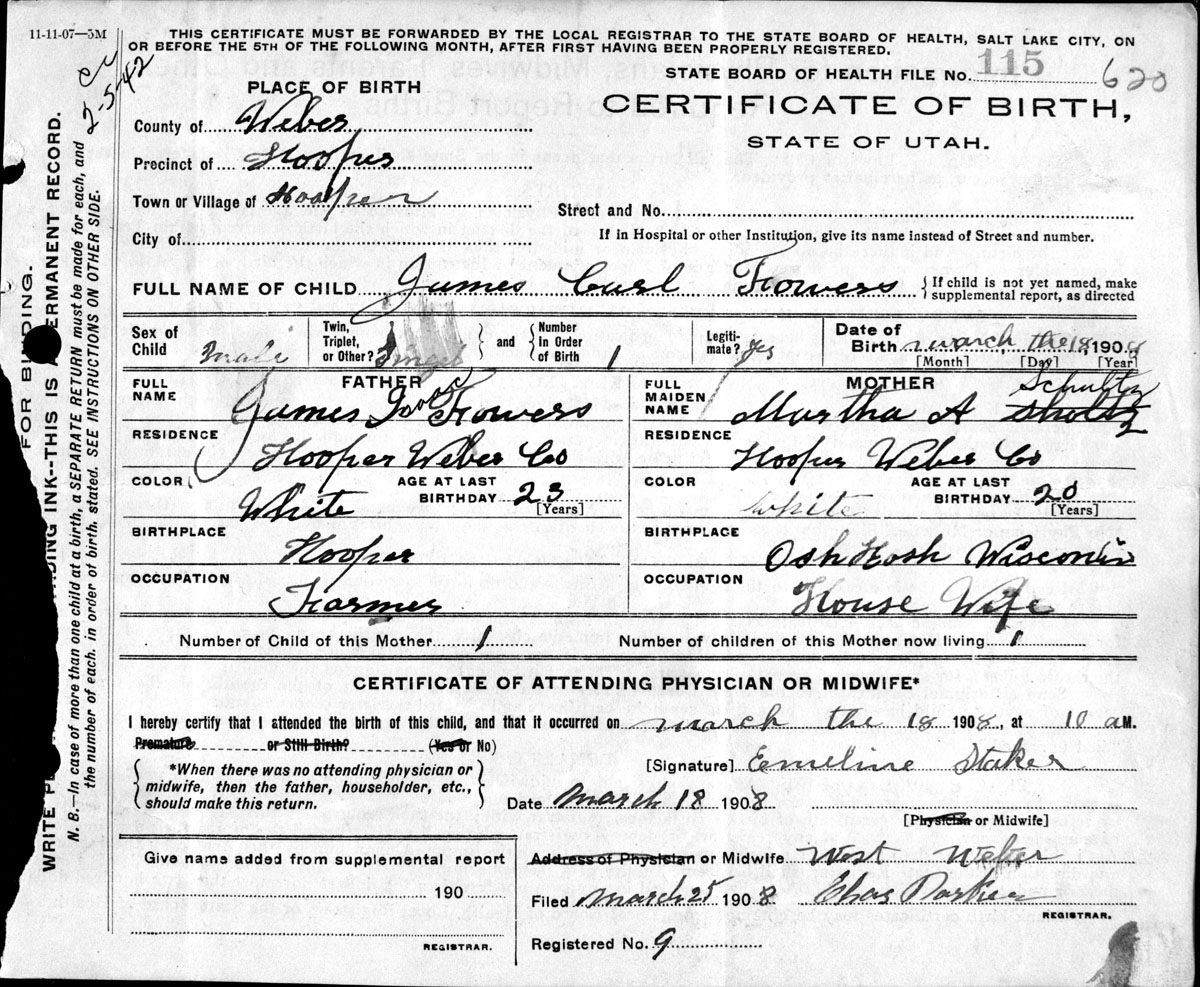 11-11-07—5M
THIS CERTIFICATE MUST BE FORWARDED BY THE LOCAL REGISTRAR TO THE STATE BOARD OF HEALTH, SALT LAKE CITY, ON
OR BEFORE THE 5TH OF THE FOLLOWING MONTH, AFTER FIRST HAVING BEEN PROPERLY REGISTERED.
2-5-42
STATE BOARD OF HEALTH FILE No. 115 620
PLACE OF BIRTH
CERTIFICATE OF BIRTH,
STATE OF UTAH.
County of Weber
Precinct of Hooper
Town or Village of Hooper
Street and No.
City of
If in Hospital or other Institution, give its name instead of Street and number.
FULL NAME OF CHILD James Carl Flowers { If child is not yet named, make
supplemental report, as directed
Sex of Child Male Twin, Triplet, or Other? Singel } and { Number in Order of Birth 1 Legiti-mate? yes Date of Birth March the 18 1908
[Month] [Day] [Year]
FATHER
FULL NAME James Flowers
RESIDENCE Hooper Weber Co
COLOR White AGE AT LAST BIRTHDAY 23 [Years]
BIRTHPLACE Hooper
OCCUPATION Farmer
MOTHER
FULL MAIDEN NAME Martha A Sholtz Schultz
RESIDENCE Hooper Weber Co
COLOR White AGE AT LAST BIRTHDAY 20 [Years]
BIRTHPLACE Osh Kosh Wisconsin
OCCUPATION House Wife
Number of Child of this Mother 1 Number of children of this Mother now living 1
CERTIFICATE OF ATTENDING PHYSICIAN OR MIDWIFE*
I hereby certify that I attended the birth of this child, and that it occurred on march the 18 1908, at 10 a M.
Premature or Still Birth? (Yes or No)
*When there was no attending physician or
midwife, then the father, householder, etc.,
should make this return.
[Signature] Emeline Staker
Date March 18 1908
[Physician or Midwife]
Give name added from supplemental report
190
REGISTRAR.
Address of Physician or Midwife West Weber
Filed March 25 1908 Chas Parker
REGISTRAR.
Registered No. 9
FOR BINDING.
WRITE INK--THIS IS A PERMANENT RECORD.
N. B.—In case of more than one child at a birth, a SEPARATE RETURN must be made for each, and
the number of each, in order of birth, stated. SEE INSTRUCTIONS ON OTHER SIDE.